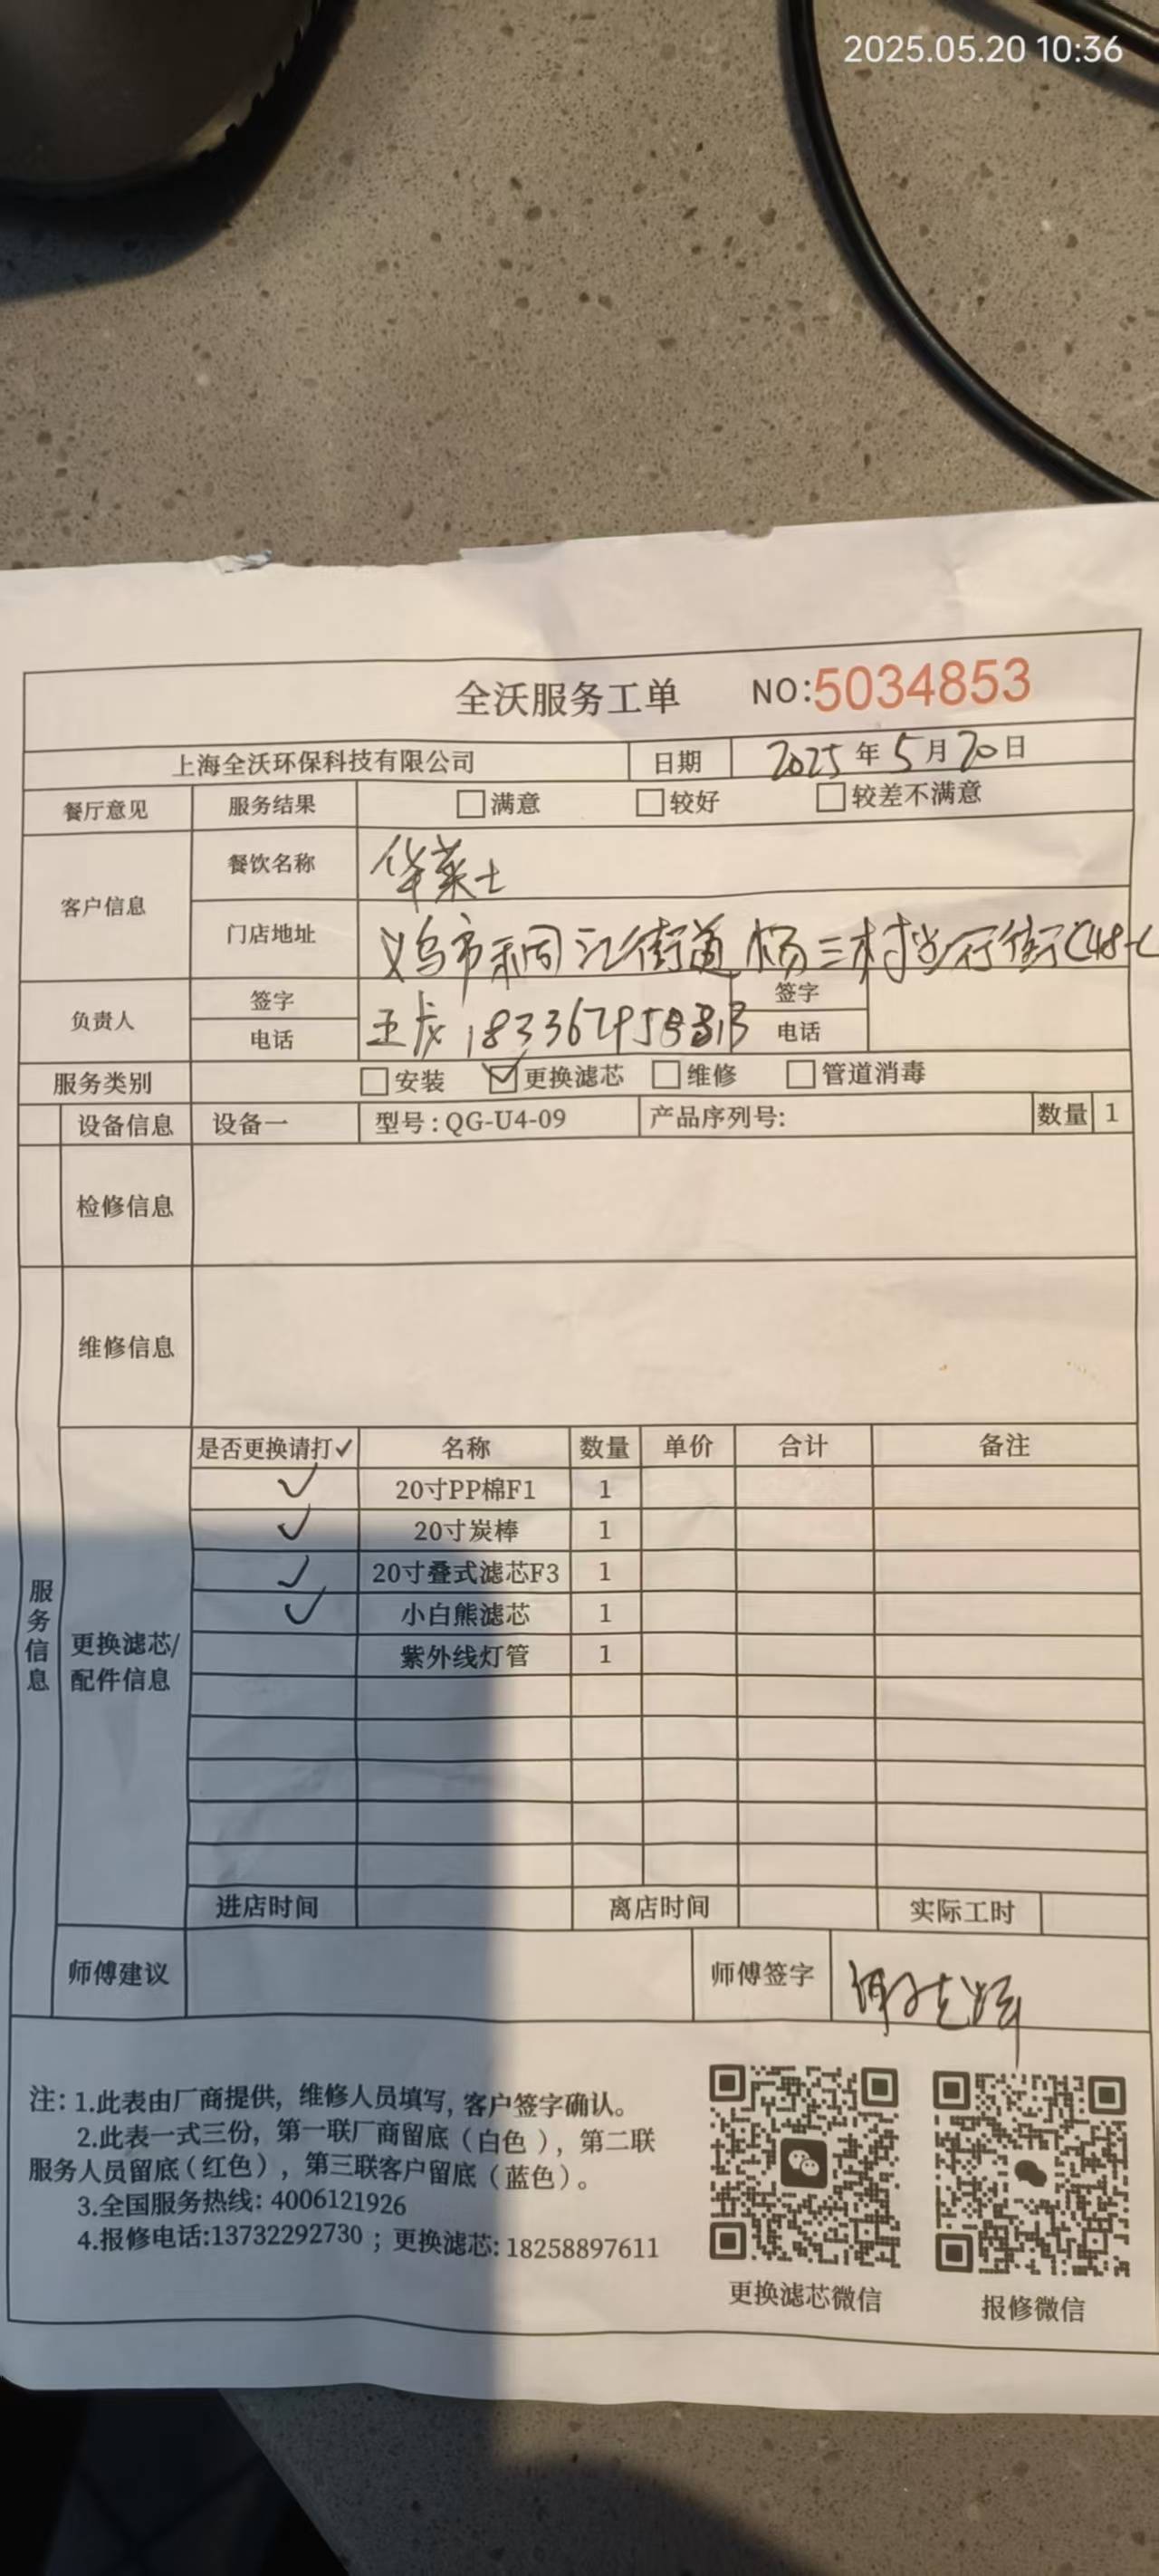 2025.05.20 10:36
全沃服务工单 NO:5034853
上海全沃环保科技有限公司 日期 2025年5月20日
餐厅意见 服务结果 满意 较好 较差不满意
客户信息 餐饮名称 华莱士
门店地址 义乌市 江街道杨三村步行街
负责人 签字 签字
电话 电话
服务类别 安装 ✓更换滤芯 维修 管道消毒
设备信息 设备一 型号:QG-U4-09 产品序列号: 数量 1
检修信息
维修信息
服务信息
更换滤芯/配件信息
是否更换请打✓ 名称 数量 单价 合计 备注
✓ 20寸PP棉F1 1
✓ 20寸炭棒 1
✓ 20寸叠式滤芯F3 1
✓ 小白熊滤芯 1
紫外线灯管 1
进店时间 离店时间 实际工时
师傅建议 师傅签字
注:1.此表由厂商提供,维修人员填写,客户签字确认。
2.此表一式三份,第一联厂商留底(白色),第二联
服务人员留底(红色),第三联客户留底(蓝色)。
3.全国服务热线:4006121926
4.报修电话:13732292730;更换滤芯:18258897611
更换滤芯微信 报修微信